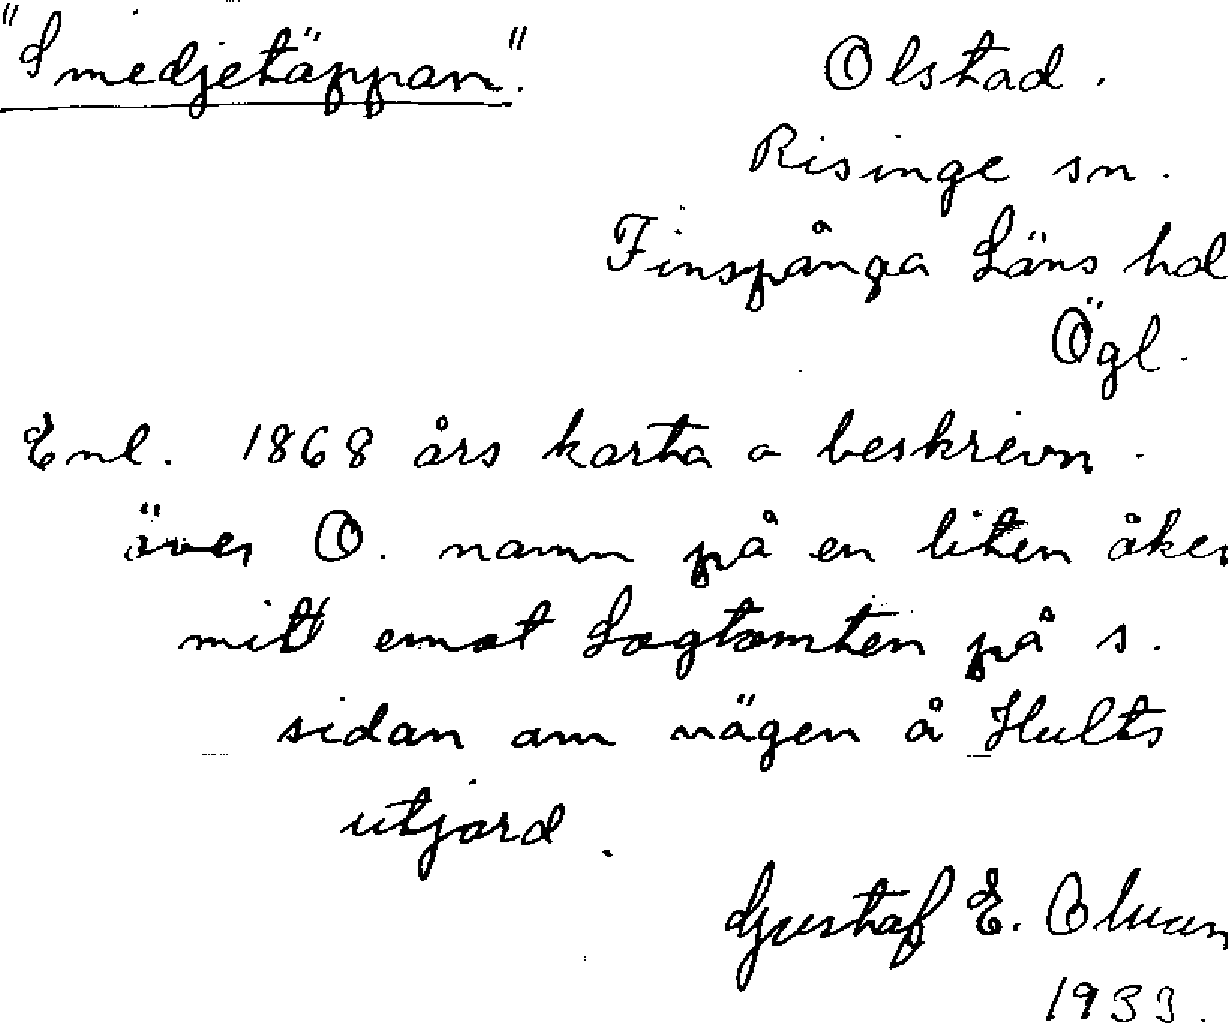 "Smedjetäppan".
Olstad.
Risinge sn.
Finspånga Läns hd
Ögl.
Enl. 1868 års karta o beskrivn.
över O. namn på en liten åker
mitt emot Sågtomten på s.
sidan om vägen å Hults
utjord.
Gustaf E.
1933.